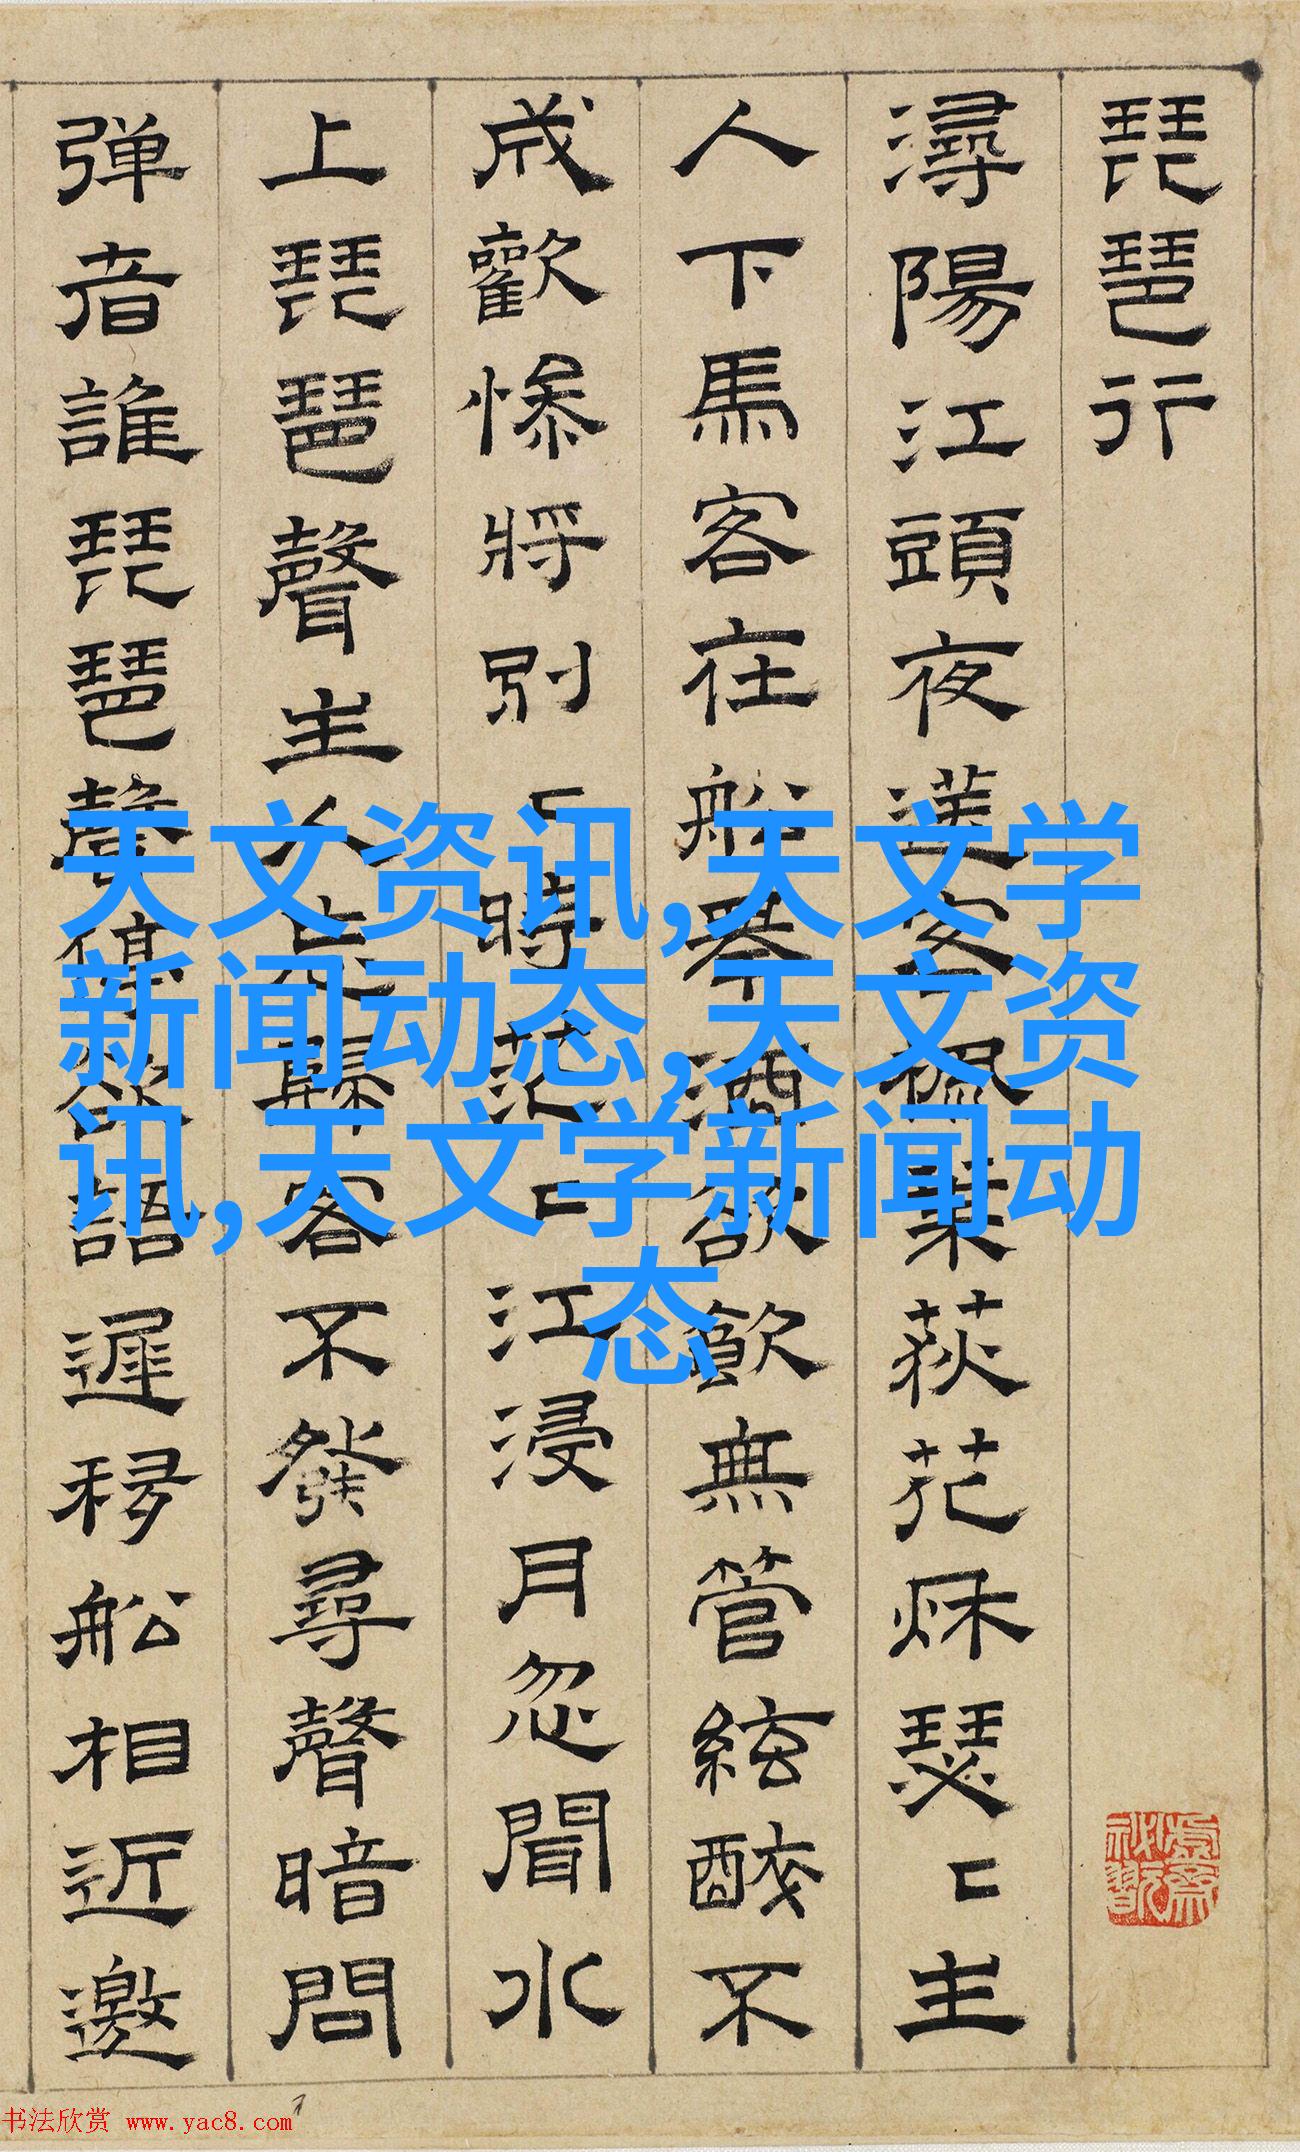 琵琶行
潯陽江頭夜送客楓葉荻花秌瑟〻主
人下馬客在船舉酒欲飲無管絃醉不
成歡慘將別〻時茫〻江浸月忽聞水
上琵琶聲主人忘歸客不發尋聲暗問
弹者誰琵琶聲停欲語遲移船相近邀
天文资讯,天文学
新闻动态,天文资
讯,天文学新闻动
态
书法欣赏 www.yac8.com